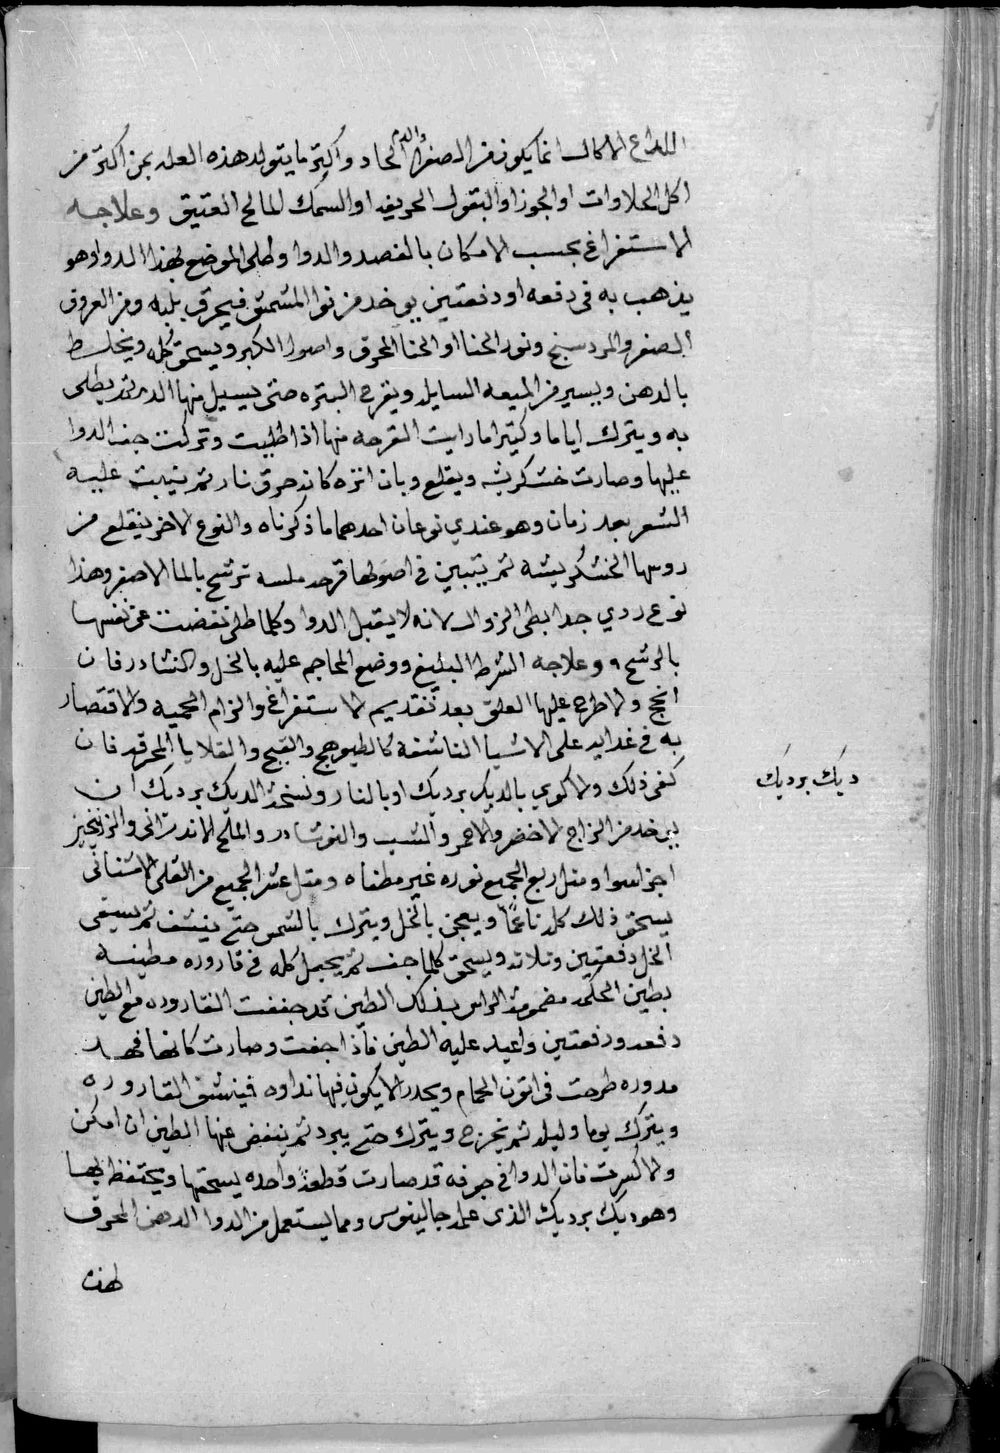 اللداع الاكال انما يكون من الصفرا والدم الحاد واكثر ما يتولد هذه العله بمن اكثر من
اكل الحلاوات او الجوز او البقول الحريفه او السمك المالح العتيق وعلاجه
الاستفراغ بحسب الامكان بالفصد والدوا وطلى الموضع بهذا الدوا وهو
يذهب به في دفعه او دفعتين يوخد من نوا المشمش فيحرق بلبه ومن العروق
الصفر والمردسنج ونور الحنا او الحنا المحرق واصول الكبر ويسحق كله ويخلط
بالدهن ويسير من الميعه السايله ويقرح البتره حتى يسيل منها الدم ثم يطلى
به ويترك اياما وكثيرا ما رايت القرحه منها اذا طليت وتركت جف الدوا
عليها وصارت خشكريشه ويقلع وبان اثره كانه حرق نار ثم ينبت عليه
الشعر بعد زمان وهو عندي نوعان احدهما ما ذكرناه والنوع الاخر ينقلع من
روسها الخشكريشه ثم يتبين في اصولها قرحه ملسه ترشح بالما الاصفر وهذا
نوع ردي جدا بطي الزوال لانه لا يقبل الدوا وكلما طلى نفضت عن نفسها
بالرشح وعلاجه الشرط البليغ ووضع المحاجم عليه بالخل والنشادر فان
انجح والا طرح عليها العلق بعد تقديم الاستفراغ والزام الحميه والاقتصار
به في غدايه على الاشيا الناشفه كالطيوهج والقبج والقلايا المحرقه فان
كفى ذلك والا كوي بالديك برديك او بالنار ونسخة الديك برديك ان
يوخد من الزاج الاخضر والاحمر والشب والنوشادر والملح الاندراني والزرنيخين
اجزا سوا ومثل ربع الجميع نوره غير مطفاه ومثل عشر الجميع من القلى الاشناني
يسحق ذلك كله ناعما ويعجن بالخل ويترك بالشمس حتى ينشف ثم يسقى
الخل دفعتين وثلاثه ويسحق كلما جف ثم يجعل كله في قاروره مطينه
بطين الحكمه مضمومة الراس بذلك الطين قد جففت القاروره مع الطين
دفعه ودفعتين واعيد عليه الطين فاذا جفت وصارت كانها فهر
مدوره طرحت في اتون الحمام ويحدر الا يكون فيها نداوه فينشق القاروره
ويترك يوما وليله ثم يخرج ويترك حتى يبرد ثم ينفض عنها الطين ان امكن
والا كسرت فان الدوا في جوفه قد صارت قطعة واحده يسحقها ويحتفظ بها
وهو ديك برديك الذى عمله جالينوس ومما يستعمل من الدوا الدهن المحرق
ديك برديك